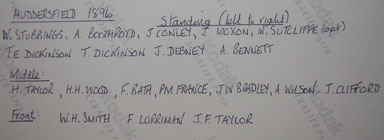 HUDDERSFIELD 1896
Standing (left to right)
W. STUBBINGS, A. BOOTHROYD, J CONLEY, J MOXON, W. SUTCLIFFE (capt)
T.E DICKINSON T. DICKINSON J. DEBNEY A. BENNETT
Middle:
H. TAYLOR, H.H. WOOD, F. BATH, P.M FRANCE, J.W BRADLEY, A WILSON, J. CLIFFORD
Front: W.H. SMITH F LORRIMAN J.F TAYLOR